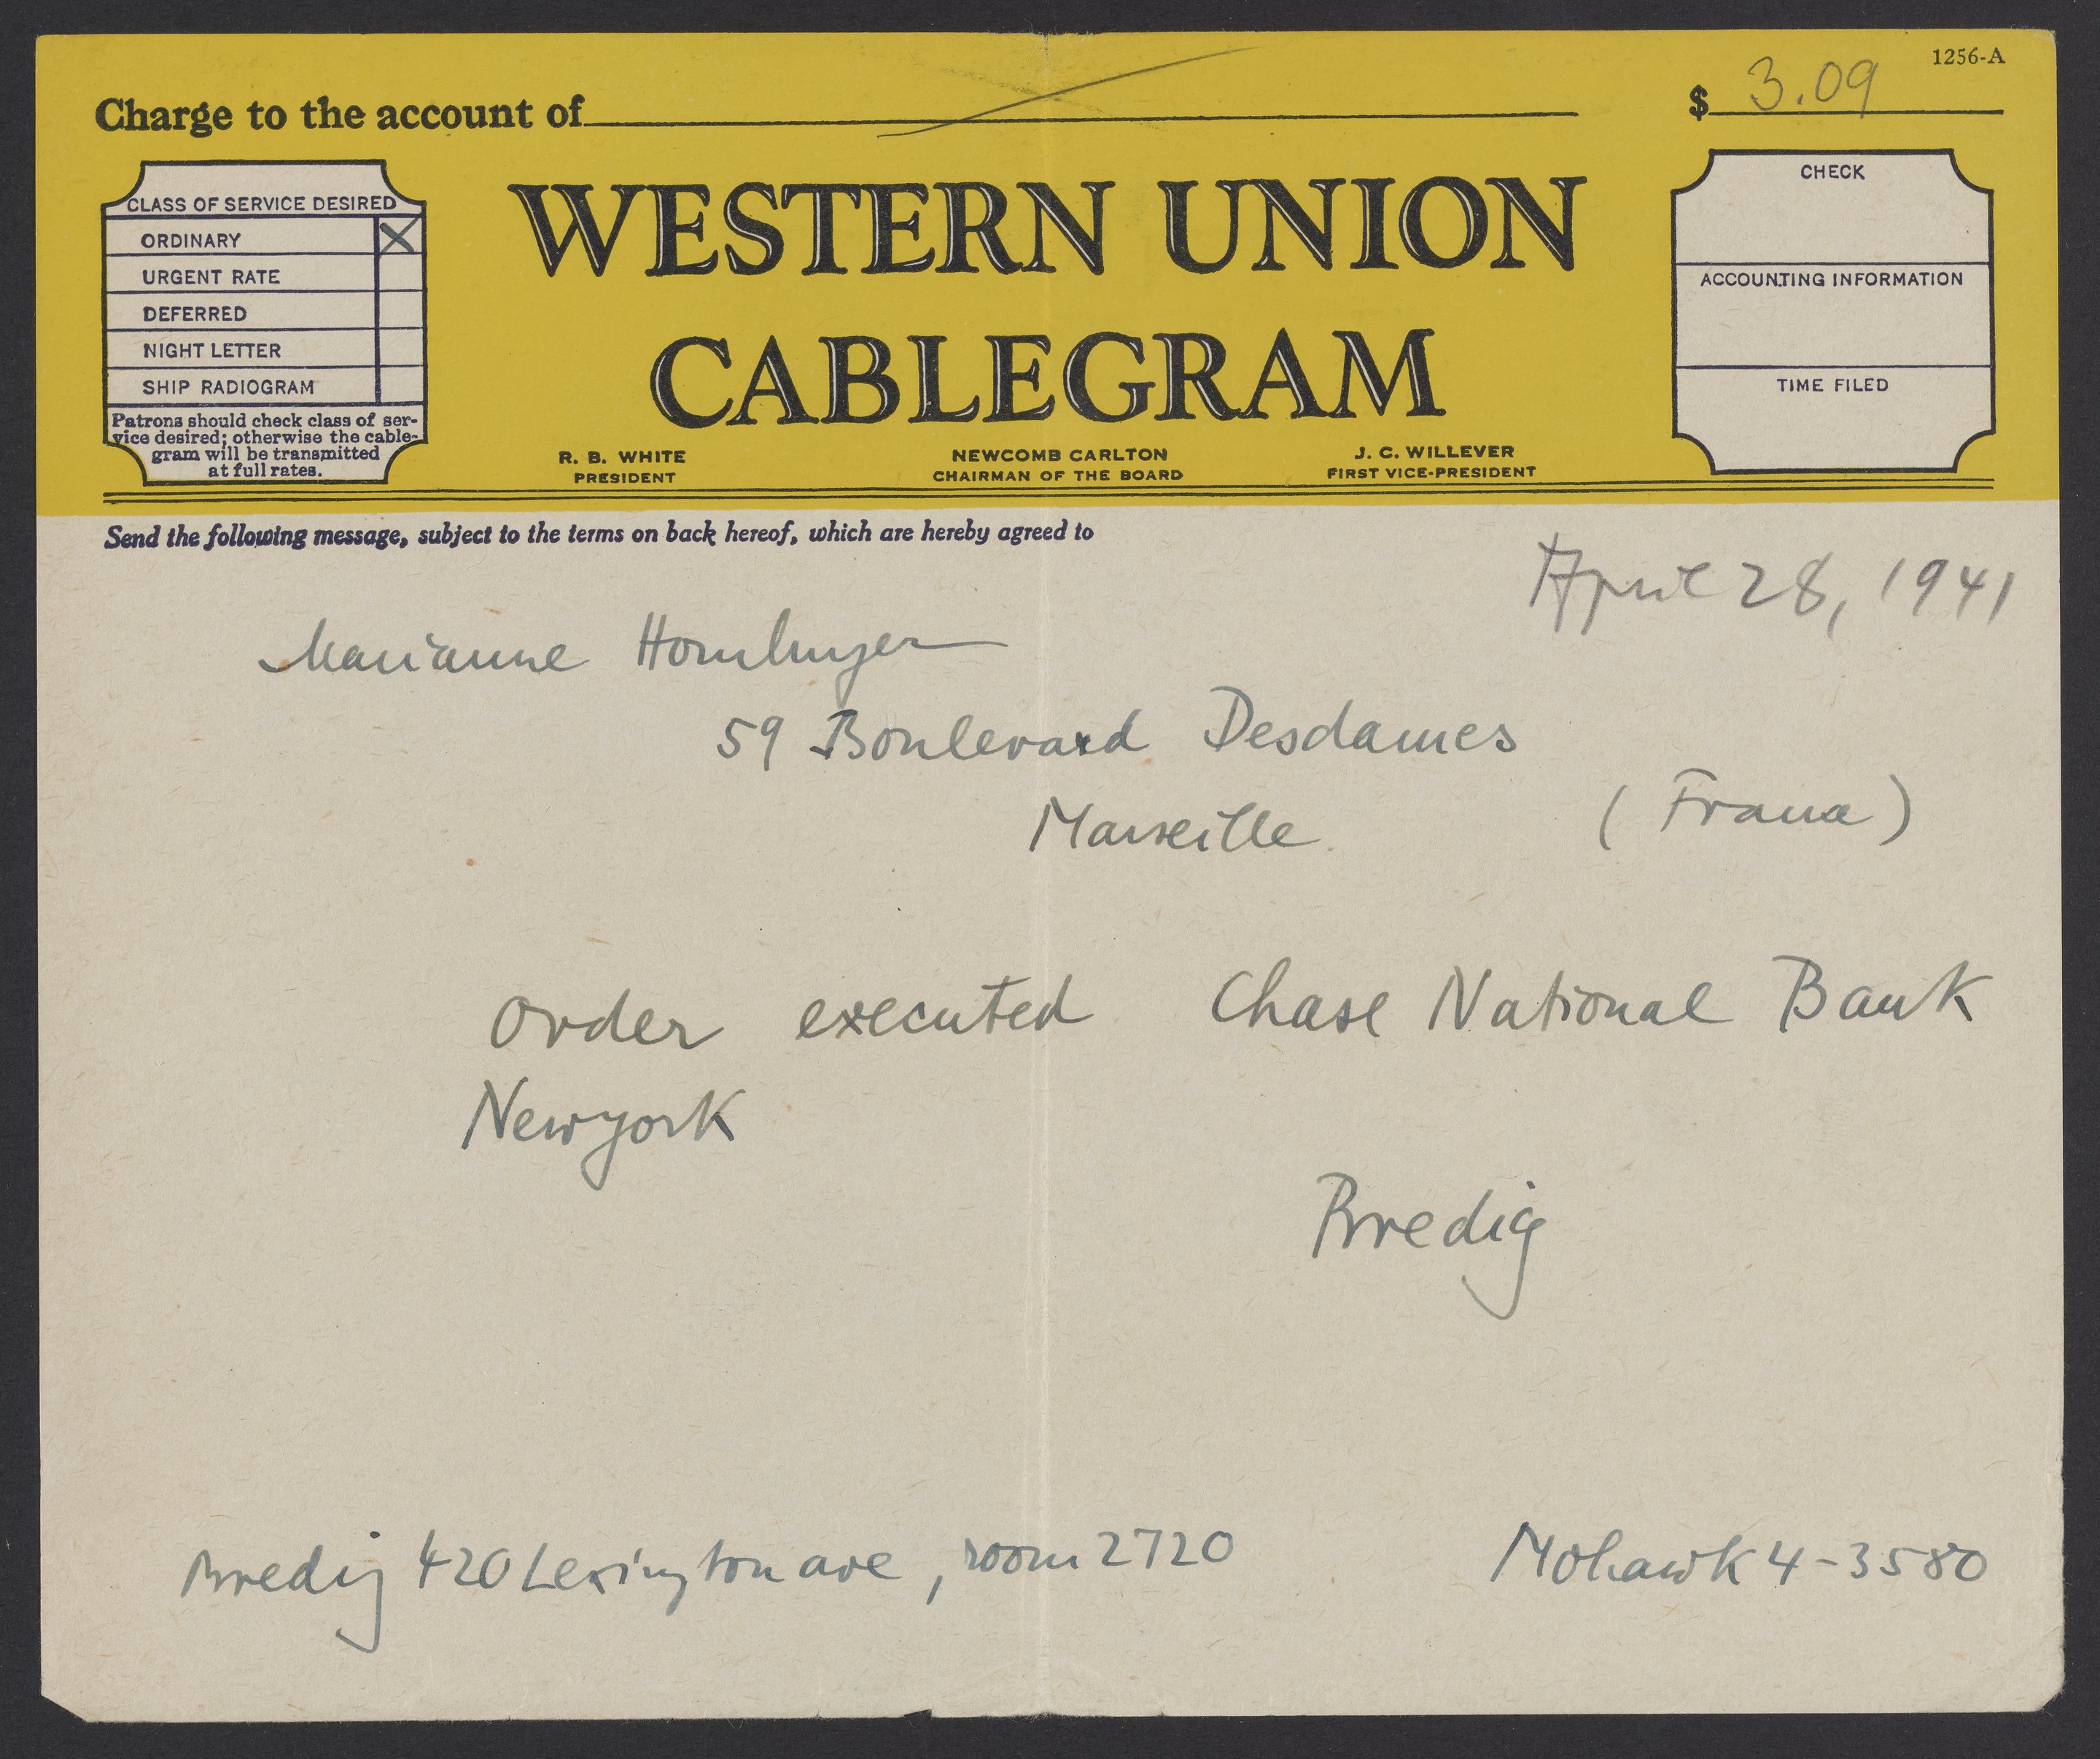 1256-A
Charge to the account of $ 3.09
CLASS OF SERVICE DESIRED
ORDINARY X
URGENT RATE
DEFERRED
NIGHT LETTER
SHIP RADIOGRAM
Patrons should check class of ser-
vice desired; otherwise the cable-
gram will be transmitted
at full rates.
WESTERN UNION
CABLEGRAM
R. B. WHITE
PRESIDENT
NEWCOMB CARLTON
CHAIRMAN OF THE BOARD
J. C. WILLEVER
FIRST VICE-PRESIDENT
CHECK
ACCOUNTING INFORMATION
TIME FILED
Send the following message, subject to the terms on back hereof, which are hereby agreed to
April 28, 1941
Marianne Homburger
59 Boulevard Desdames
Marseille (France)
Order executed Chase National Bank
Newyork
Bredig
Bredig 420 Lexington ave, room 2720 Mohawk 4-3580